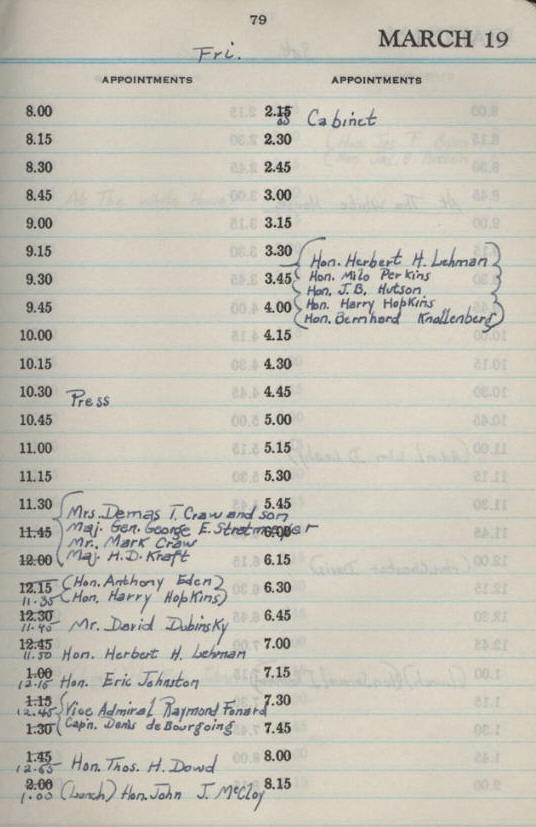 79
MARCH 19
Fri.
APPOINTMENTS
8.00
8.15
8.30
8.45
9.00
9.15
9.30
9.45
10.00
10.15
10.30 Press
10.45
11.00
11.15
11.30 Mrs. Demas T. Craw and son
11.45 Maj. Gen. George E. Stratmeyer
Mr. Mark Craw
12.00 Maj. H.D. Kraft
12.15 (Hon. Anthony Eden)
11.35 (Hon. Harry Hopkins)
12.30
11.45 Mr. David Dubinsky
12.45
11.50 Hon. Herbert H. Lehman
1.00
12.15 Hon. Eric Johnston
1.15
12.45 Vice Admiral Raymond Fenard
1.30 Capn. Denis de Bourgoing
1.45
12.55 Hon. Thos. H. Dowd
2.00
1.00 (Lunch) Hon. John J. McCloy
APPOINTMENTS
2.15 Cabinet
2.30
2.45
3.00
3.15
3.30
Hon. Herbert H. Lehman
3.45 Hon. Milo Perkins
Hon. J.B. Hutson
4.00 Hon. Harry Hopkins
Hon. Bernhard Knollenberg
4.15
4.30
4.45
5.00
5.15
5.30
5.45
6.00
6.15
6.30
6.45
7.00
7.15
7.30
7.45
8.00
8.15